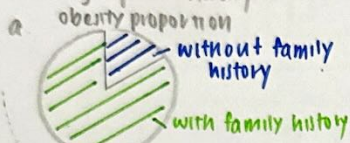 a obesity proportion
without family
history
with family history